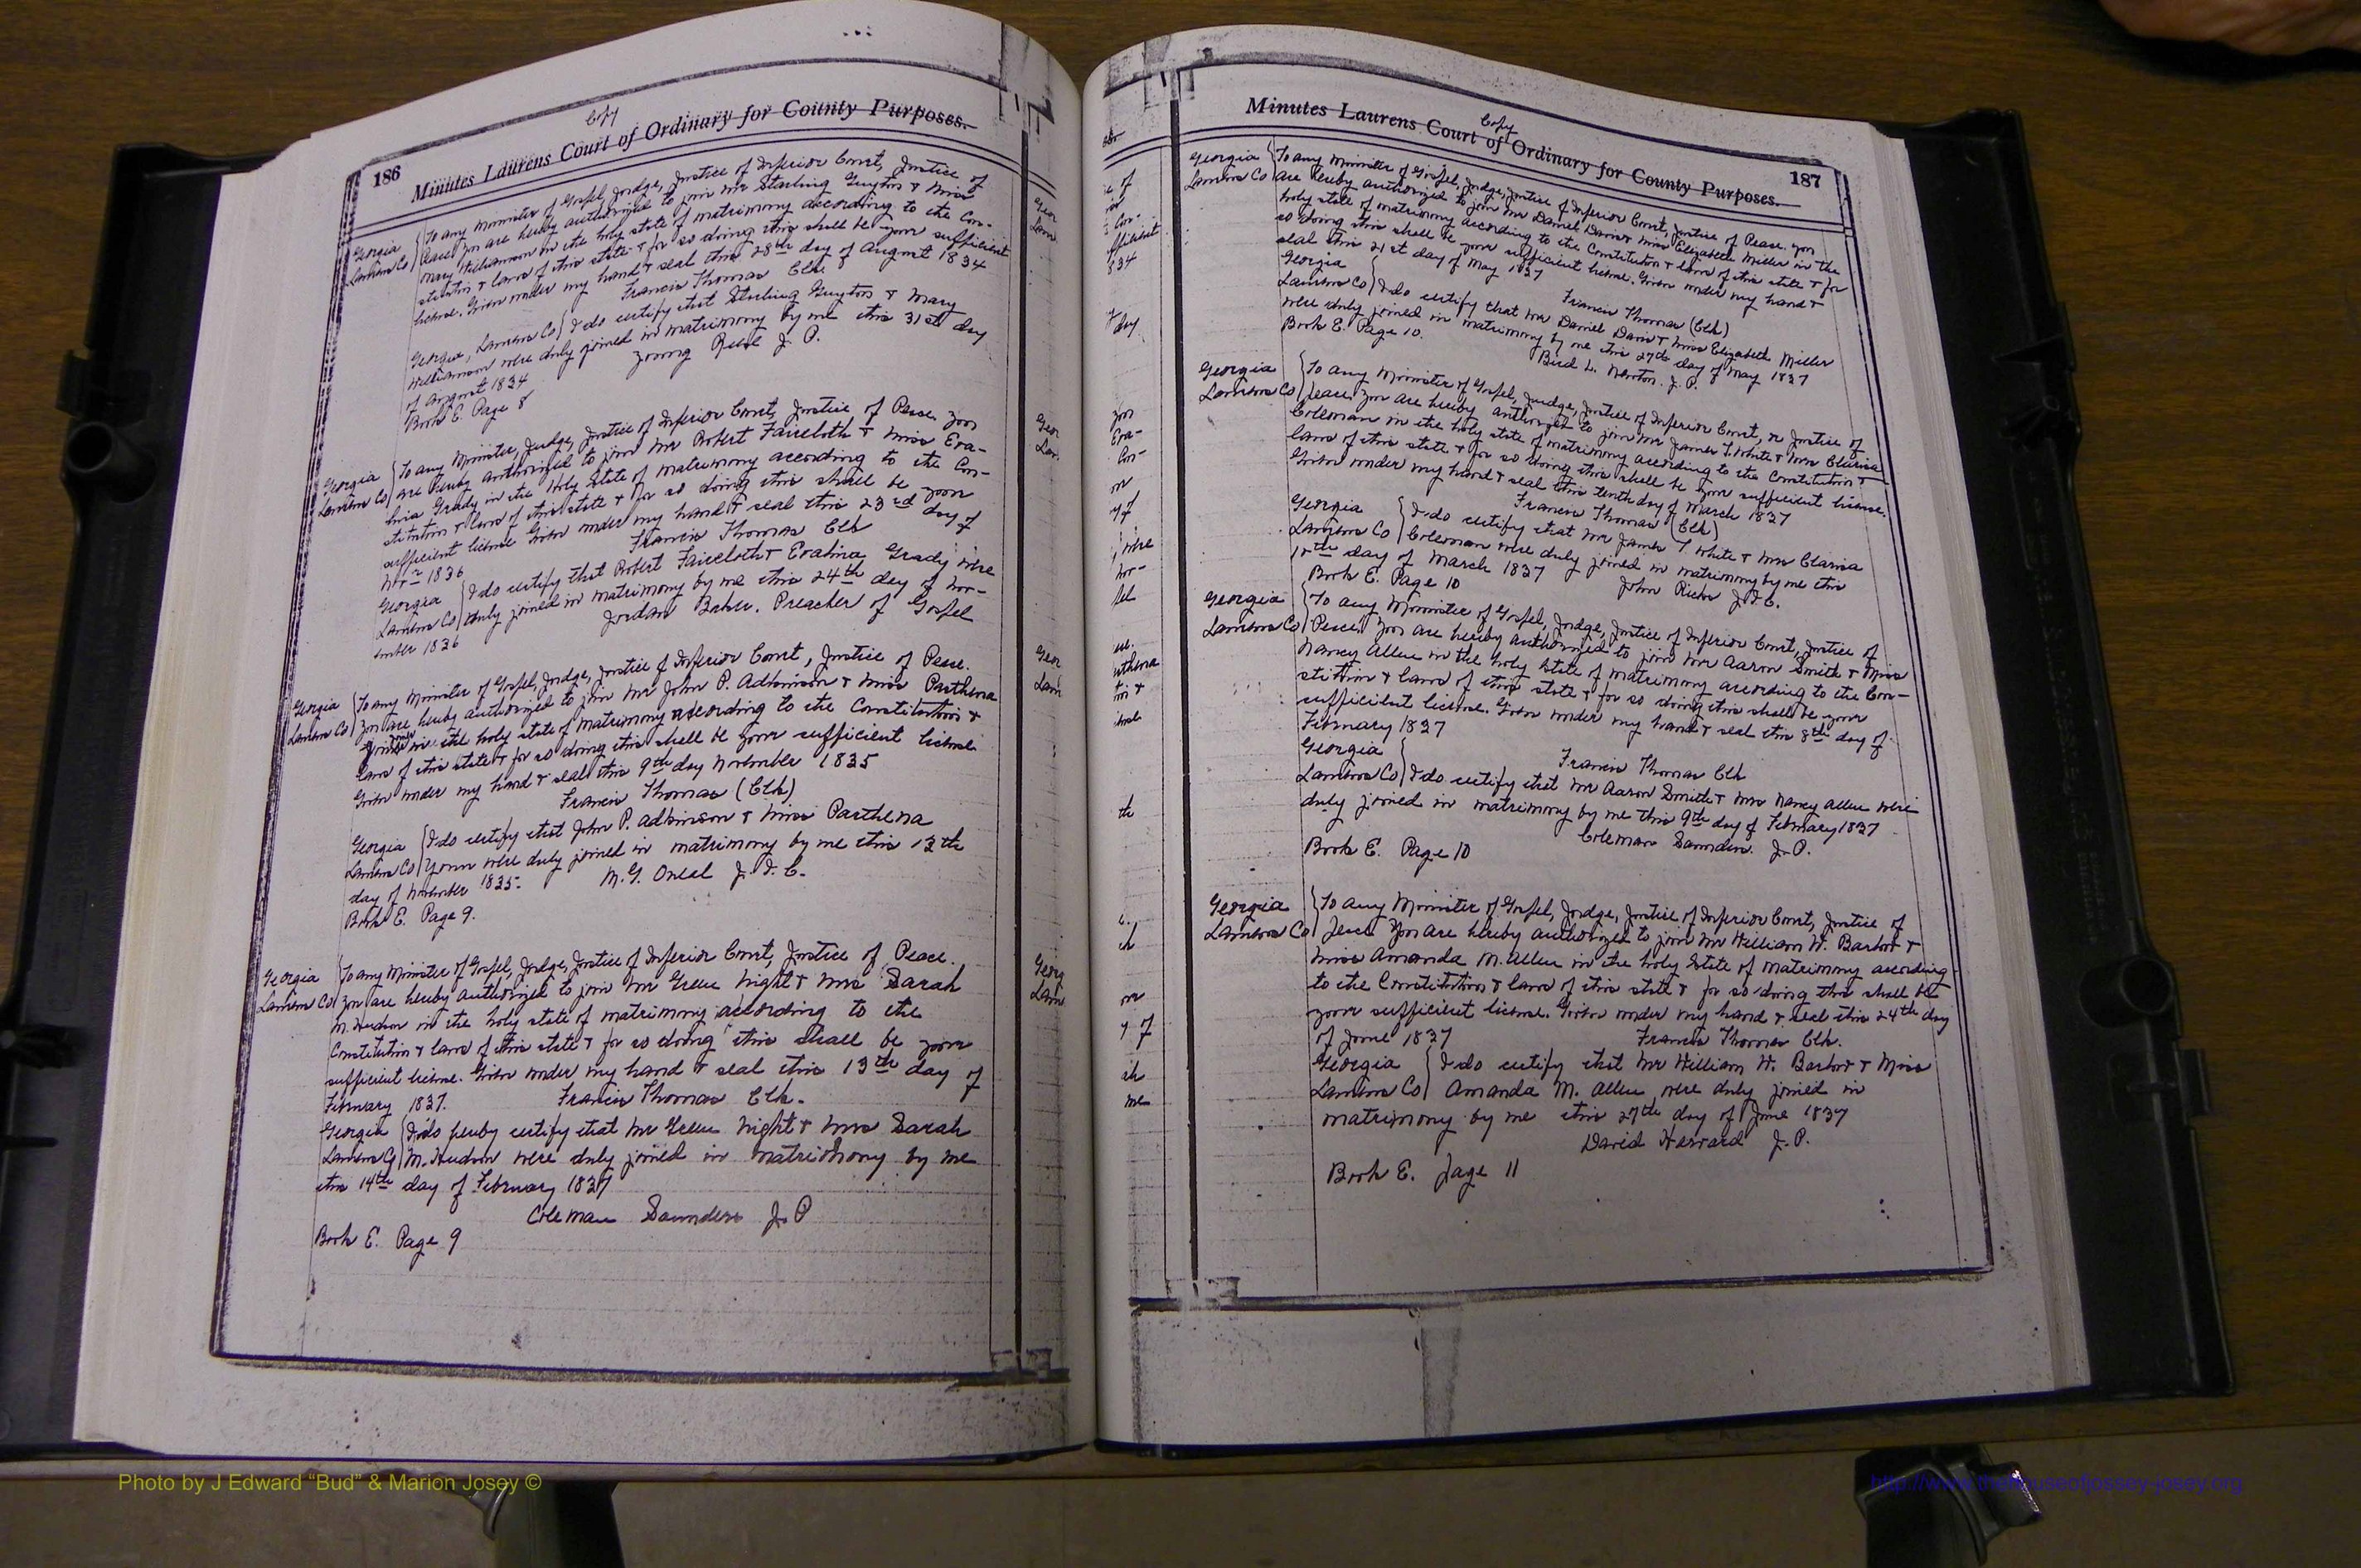 Copy
186 Minutes Laurens Court of Ordinary for County Purposes.
Georgia To any Minister of Gospel, Judge, Justice of Inferior Court, Justice of
Laurens Co Peace You are hereby authorized to join Mr Starling Guyton & Miss
Mary Williamson in the holy state of matrimony according to the Con-
stitution & laws of this state & for so doing this shall be your sufficient
license. Given under my hand & seal this 28th day of August 1834
Francis Thomas Clk.
Georgia, Laurens Co I do certify that Starling Guyton & Mary
Williamson were duly joined in matrimony by me this 31st day
of August 1834 J. P.
Book E. Page 8
Georgia To any Minister, Judge, Justice of Inferior Court, Justice of Peace You
Laurens Co are hereby authorized to join Mr Robert Faircloth & Miss Eva-
lina Grady in the Holy State of matrimony according to the Con-
stitution & laws of this state & for so doing this shall be your
sufficient license Given under my hand & seal this 23rd day of
Novr 1836 Francis Thomas Clk
Georgia I do certify that Robert Faircloth & Evalina Grady were
Laurens Co duly joined in matrimony by me this 24th day of Nov-
ember 1836 Jordan Baker. Preacher of Gospel
Georgia To any Minister of Gospel, Judge, Justice of Inferior Court, Justice of Peace.
Laurens Co You are hereby authorized to join Mr John P. Adkinson & Miss Parthena
in the holy state of matrimony according to the Constitution &
laws of this state & for so doing this shall be your sufficient license
Given under my hand & seal this 9th day November 1835
Francis Thomas (Clk)
Georgia I do certify that John P. Adkinson & Miss Parthena
Laurens Co were duly joined in matrimony by me this 12th
day of November 1835. M. G. Oneal J. I. C.
Book E. Page 9.
Georgia To any Minister of Gospel, Judge, Justice of Inferior Court, Justice of Peace.
Laurens Co You are hereby authorized to join Mr Green Night & Mrs Sarah
M. Hudson in the holy state of matrimony according to the
Constitution & laws of this state & for so doing this shall be your
sufficient license. Given under my hand & seal this 13th day of
February 1837. Francis Thomas Clk.
Georgia I do hereby certify that Mr Green Night & Mrs Sarah
Laurens Co M. Hudson were duly joined in matrimony by me
this 14th day of February 1837
Coleman Saunders J. P
Book E. Page 9
Copy
Minutes Laurens Court of Ordinary for County Purposes. 187
Georgia To any Minister of Gospel, Judge, Justice of Inferior Court, Justice of Peace. You
Laurens Co are hereby authorized to join Mr Daniel Davis & Miss Elizabeth Miller in the
holy state of matrimony according to the Constitution & laws of this state & for
so doing this shall be your sufficient license. Given under my hand &
seal this 21st day of May 1837
Georgia Francis Thomas (Clk)
Laurens Co I do certify that Mr Daniel Davis & Miss Elizabeth Miller
were duly joined in matrimony by me this 27th day of May 1837
Book E. Page 10. Bird L. Newton. J. P.
Georgia To any Minister of Gospel, Judge, Justice of Inferior Court, or Justice of
Laurens Co Peace. You are hereby authorized to join Mr James T. White & Mrs Clarisa
Coleman in the holy state of matrimony according to the Constitution &
laws of this state & for so doing this shall be your sufficient license.
Given under my hand & seal this tenth day of March 1837
Francis Thomas (Clk)
Georgia I do certify that Mr James T White & Mrs Clarisa
Laurens Co Coleman were duly joined in matrimony by me this
day of March 1837 John Ricks J.I.C.
Book E. Page 10
Georgia To any Minister of Gospel, Judge, Justice of Inferior Court, Justice of
Laurens Co Peace, You are hereby authorized to join Mr Aaron Smith & Miss
Nancy Allen in the Holy State of matrimony according to the Con-
stitution & laws of this state & for so doing this shall be your
sufficient license. Given under my hand & seal this 8th day of
February 1837
Georgia Francis Thomas Clk
Laurens Co I do certify that Mr Aaron Smith & Mrs Nancy Allen were
duly joined in matrimony by me this 9th day of February 1837
Coleman Saunders. J. P.
Book E. Page 10
Georgia To any Minister of Gospel, Judge, Justice of Inferior Court, Justice of
Laurens Co Peace You are hereby authorized to join Mr William W. Barlow &
Miss Amanda M. Allen in the holy State of matrimony according
to the Constitution & laws of this state & for so doing this shall be
your sufficient license. Given under my hand & seal this 24th day
of June 1837 Francis Thomas Clk.
Georgia I do certify that Mr William W. Barlow & Miss
Laurens Co Amanda M. Allen were duly joined in
matrimony by me this 27th day of June 1837
David Harvard J. P.
Book E. Page 11
Photo by J Edward “Bud” & Marion Josey ©
http://www.thehouseofjossey-josey.org